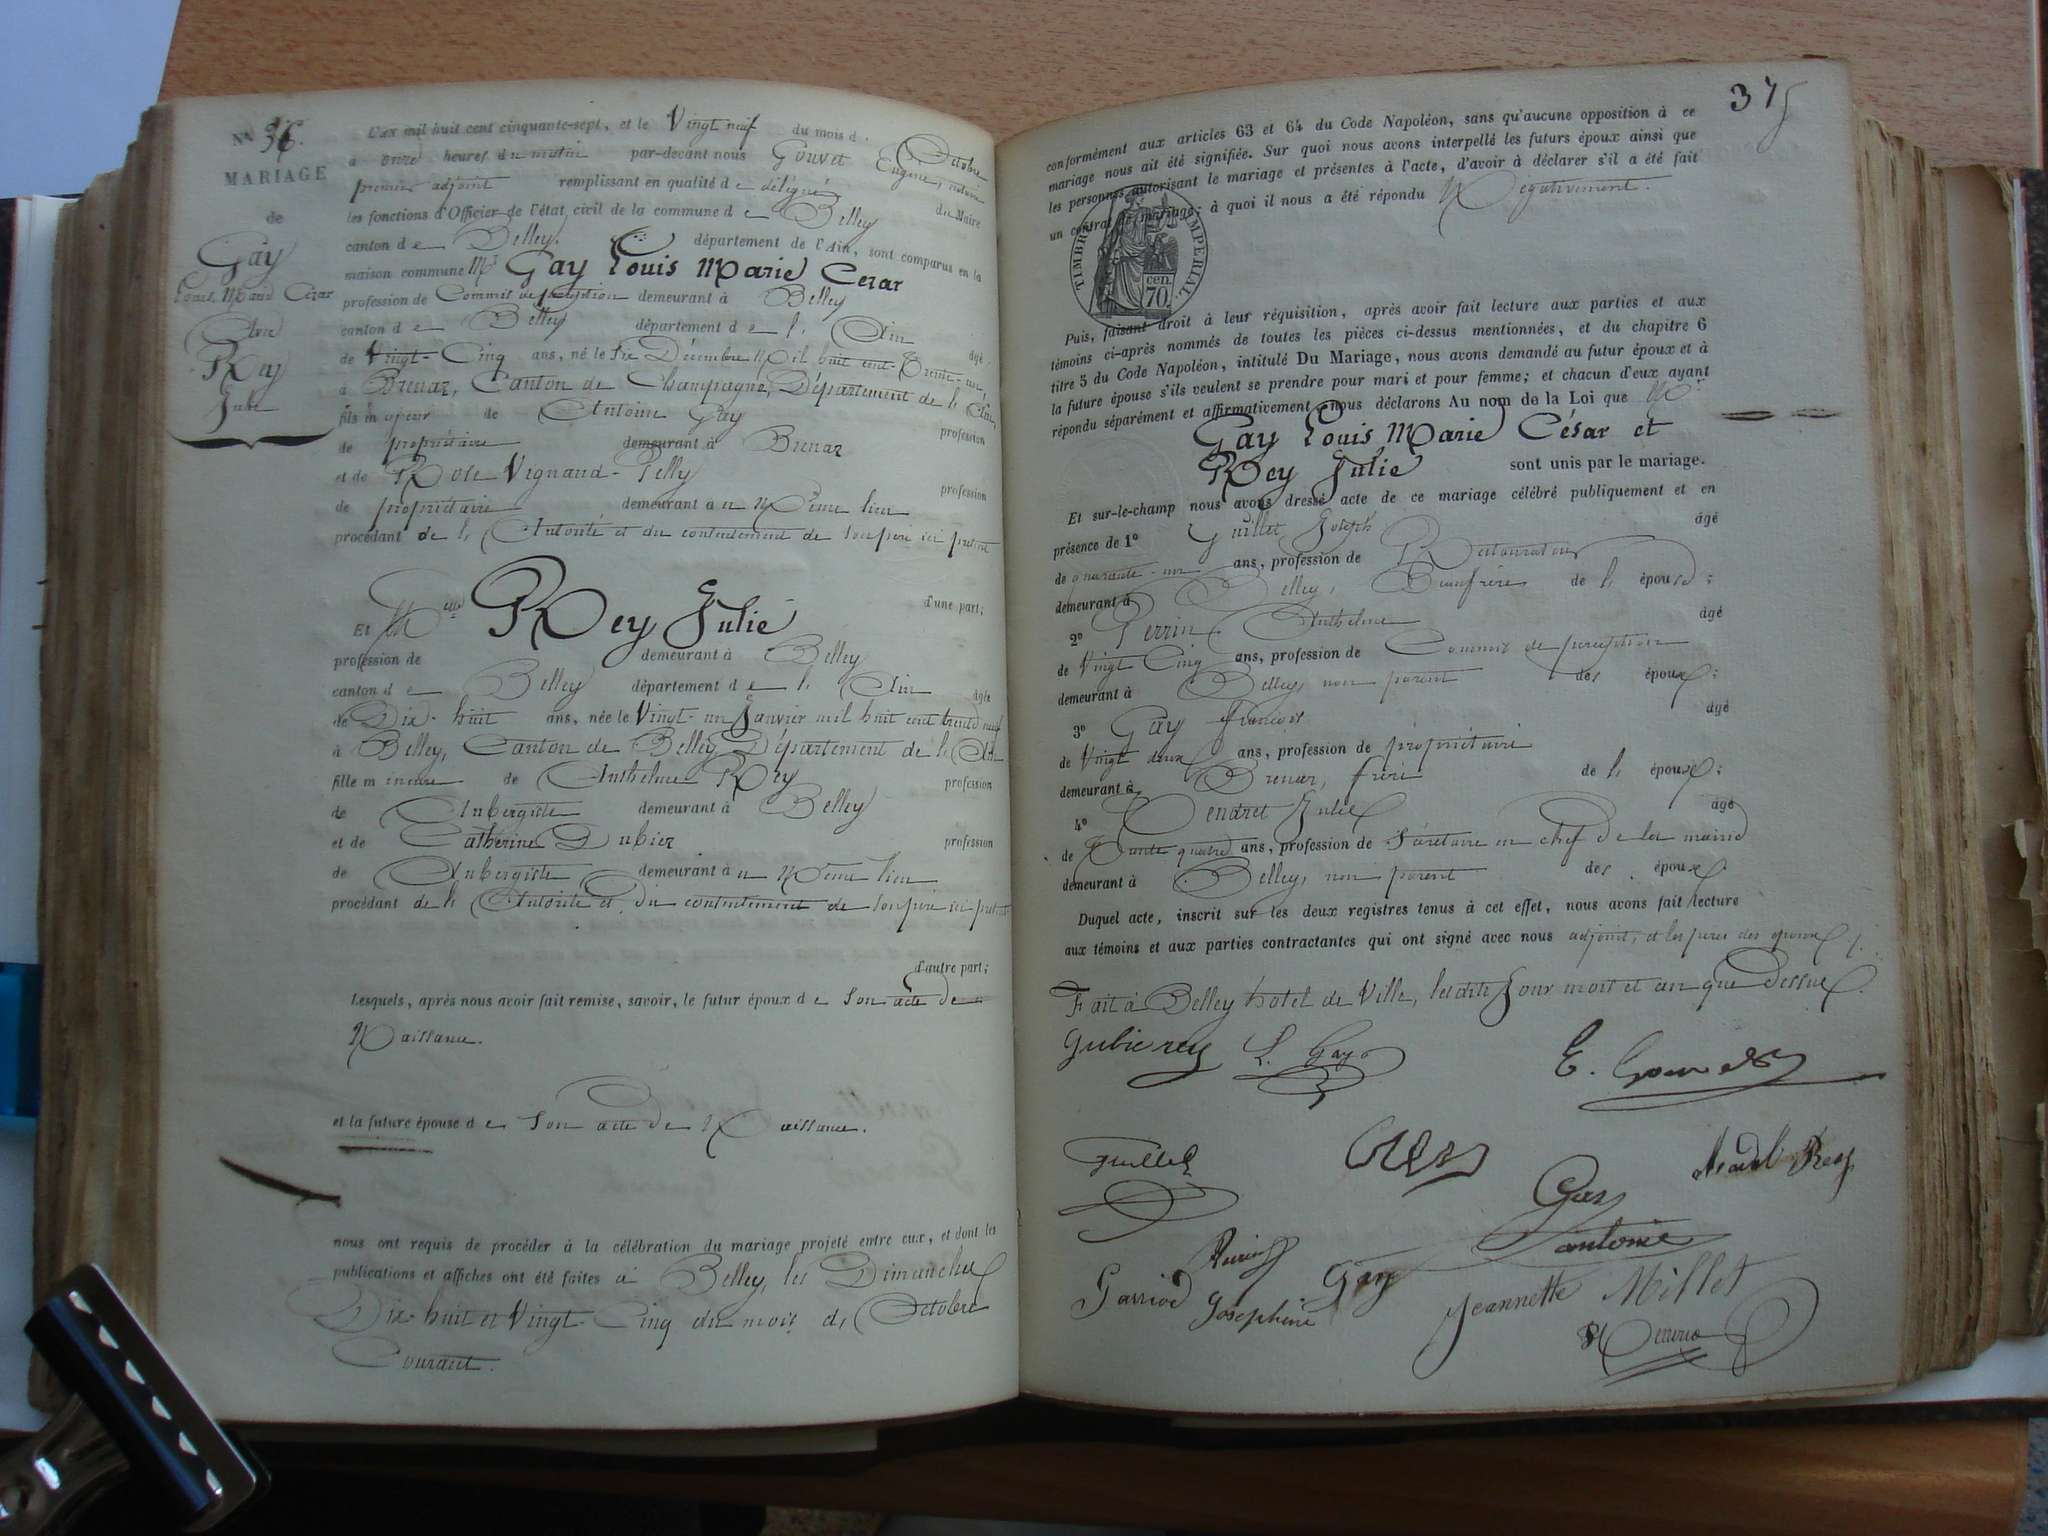 Nº 36.
MARIAGE
de
Gay
Louis Marie Cézar
Avec
Rey
Julie
L'an mil huit cent cinquante-sept, et le Vingt neuf du mois d'Octobre
à onze heures du matin par-devant nous Gouvet Eugène, notaire
premier adjoint remplissant en qualité de délégué du Maire
les fonctions d'Officier de l'état civil de la commune de Belley
canton de Belley département de l'Ain, sont comparus en la
maison commune Mr Gay Louis Marie Cezar
profession de Commis de perception demeurant à Belley
canton de Belley département de l'Ain âgé
de Vingt-Cinq ans, né le Décembre Mil huit cent trente-un
à Brenaz, Canton de Champagne, Département de l'Ain
fils majeur de Antoine Gay profession
de propriétaire demeurant à Brenaz
et de Rose Vignaud-Pelly profession
de propriétaire demeurant au Même lieu
procédant de l'Autorité et du contentement de son père ici présent
d'une part;
Et Melle Rey Julie
profession de demeurant à Belley
canton de Belley département de l'Ain âgée
de Dix-huit ans, née le Vingt-un Janvier mil huit cent trente neuf
à Belley, Canton de Belley Département de l'Ain
fille mineure de Anthelme Rey profession
de Aubergiste demeurant à Belley
et de Catherine Dubiez profession
de Aubergiste demeurant au Même lieu
procédant de l'Autorité et du contentement de son père ici présent
d'autre part;
Lesquels, après nous avoir fait remise, savoir, le futur époux de son acte de
Naissance.
et la future épouse de son acte de Naissance.
nous ont requis de procéder à la célébration du mariage projeté entre eux, et dont les
publications et affiches ont été faites à Belley, les Dimanches
Dix-huit et Vingt-Cinq du mois d'Octobre
Courant.
375
conformément aux articles 63 et 64 du Code Napoléon, sans qu'aucune opposition à ce
mariage nous ait été signifiée. Sur quoi nous avons interpellé les futurs époux ainsi que
les personnes autorisant le mariage et présentes à l'acte, d'avoir à déclarer s'il a été fait
un contrat de mariage; à quoi il nous a été répondu Négativement.
TIMBRE IMPÉRIAL
cen.
70
Puis, faisant droit à leur réquisition, après avoir fait lecture aux parties et aux
témoins ci-après nommés de toutes les pièces ci-dessus mentionnées, et du chapitre 6
titre 5 du Code Napoléon, intitulé Du Mariage, nous avons demandé au futur époux et à
la future épouse s'ils veulent se prendre pour mari et pour femme; et chacun d'eux ayant
répondu séparément et affirmativement, nous déclarons Au nom de la Loi que Mr
Gay Louis Marie César et
Rey Julie sont unis par le mariage.
Et sur-le-champ nous avons dressé acte de ce mariage célébré publiquement et en
présence de 1º Guillet Joseph âgé
de quarante-un ans, profession de Restaurateur
demeurant à Belley, Beaufrère de l'épouse;
2º Perrin Anthelme âgé
de Vingt Cinq ans, profession de Commis de perception
demeurant à Belley, non parent des époux;
3º Gay François âgé
de Vingt deux ans, profession de propriétaire
demeurant à Brenaz, frère de l'époux;
4º Dendret Jules âgé
de Trente quatre ans, profession de Sécretaire en chef de la mairie
demeurant à Belley, non parent des époux.
Duquel acte, inscrit sur les deux registres tenus à cet effet, nous avons fait lecture
aux témoins et aux parties contractantes qui ont signé avec nous adjoint, et les pères des époux
Fait à Belley hôtel de Ville, lesdits Jour mois et an que Dessus.
Julie rey L. Gay E. Gouvet
Guillet Rey
Gay
antoine
Perrin
Garriod Josephine Gay Jeannette Millet